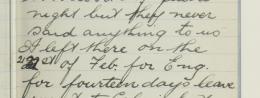 night but they never
said anything to us
I left there on the
22nd of Feb. for Eng.
for fourteen days leave